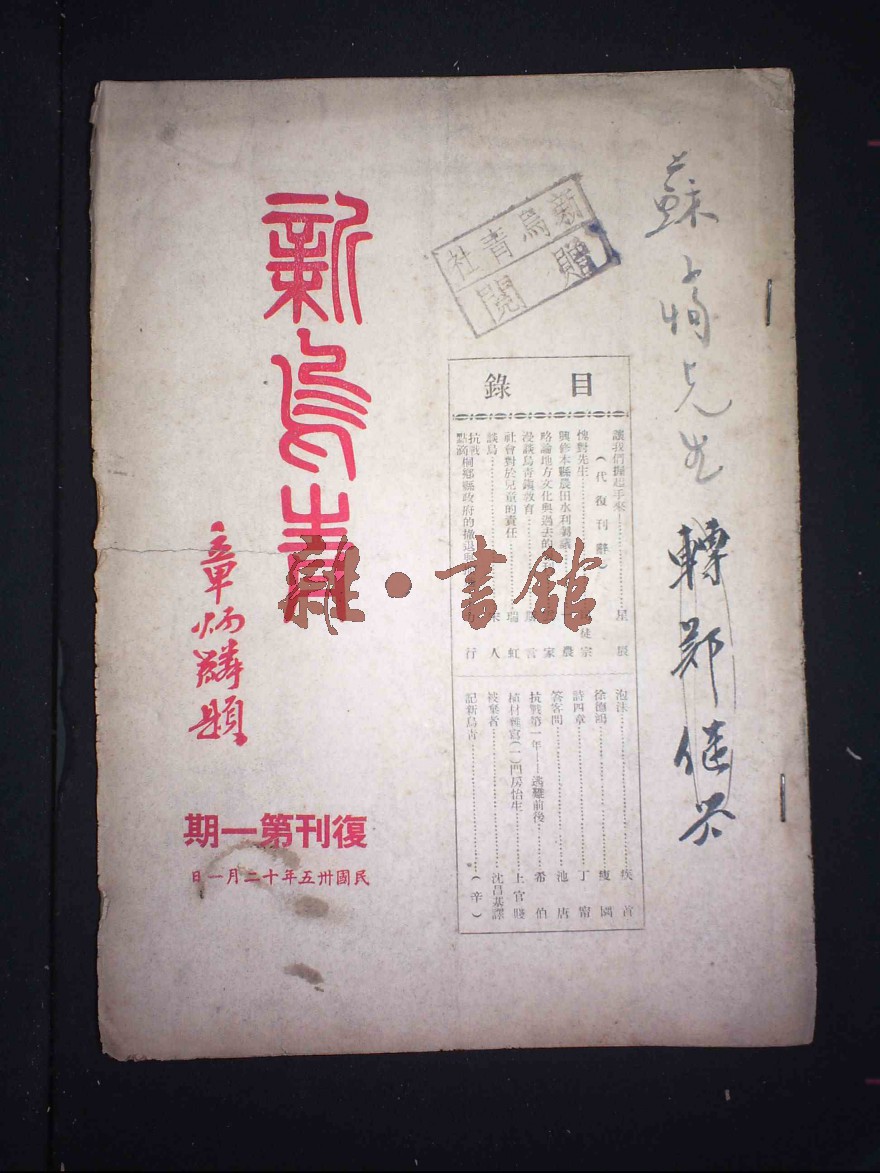 新烏青
章炳麟題
復刊第一期
民國卅五年十二月一日
新烏青社
贈閱
目錄
讓我們握起手來
(代復刊辭)
星辰
愧對先生
徒宗
興修本縣農田水利芻議
農
略論地方文化與過去的
家
漫談烏青鎮教育
言
社會對於兒童的責任
瑞虹
談烏
人
抗戰點滴
桐鄉縣政府的撤退
行
泡沫
疾首
徐德鴻
詩四章
丁甯
答客問
池唐
抗戰第一年——逃難前後
希伯
植材雜寫(一)門房怡生
上官賤
被棄者
沈昌基譯
記新烏青
(辛)
蘇
先生
轉鄭
雜·書館